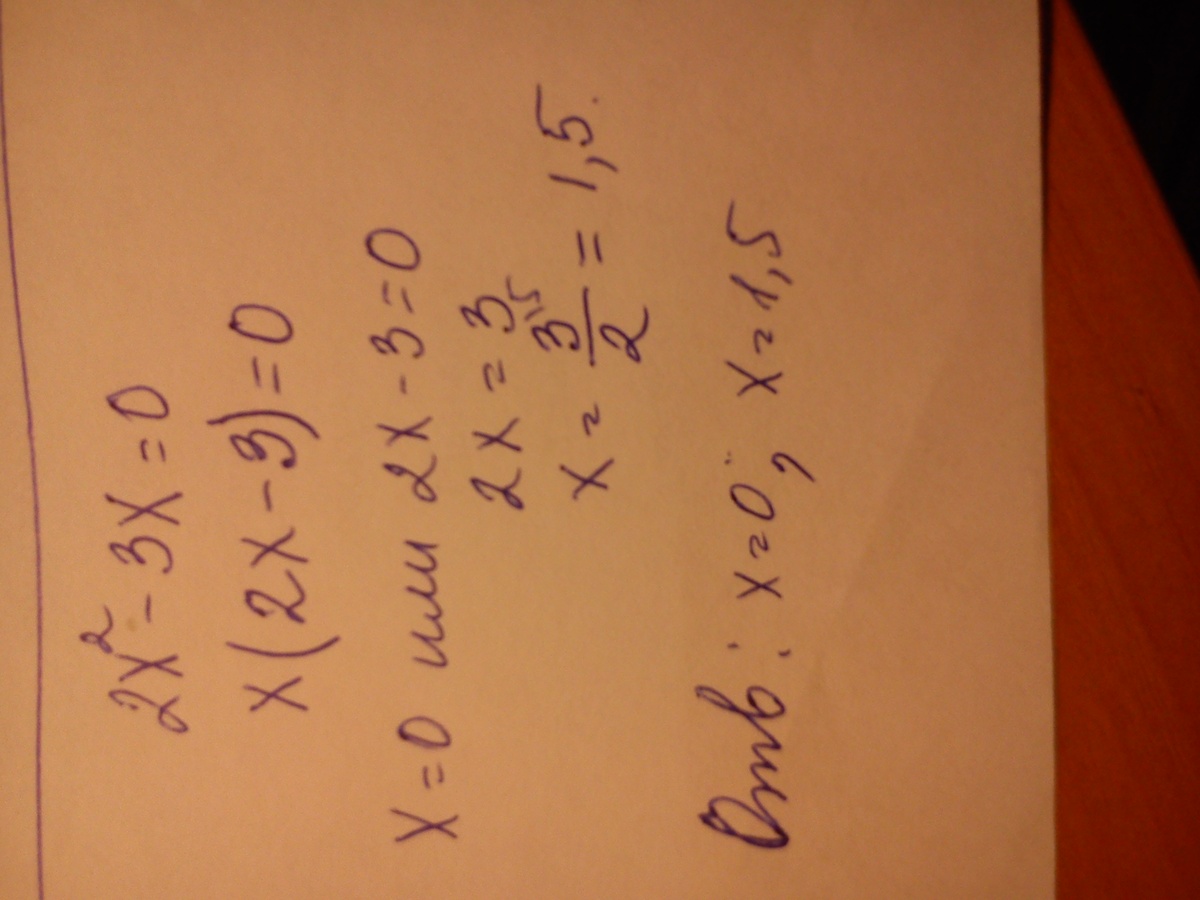 2x² - 3x = 0
x(2x - 3) = 0
x = 0 или 2x - 3 = 0
2x = 3
x = 3/2 = 1,5.
Отв: x = 0; x = 1,5